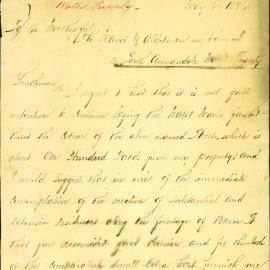 Water Supply. May 4 1880
To the Worshipful
The Mayor & Aldermen in Council
Gentlemen
I regret to hear that it is not your
intention to continue laying the Water Mains further
than the corner of the above named Street, which is
about One Hundred Yards from my property; and
I would suggest that in view of the immediate
Contemplation of the erection of substantial and
extensive residences along the frontage of Bruce St
that you reconsider your decision and for the sake
of the comparatively small extra Cost furnish me